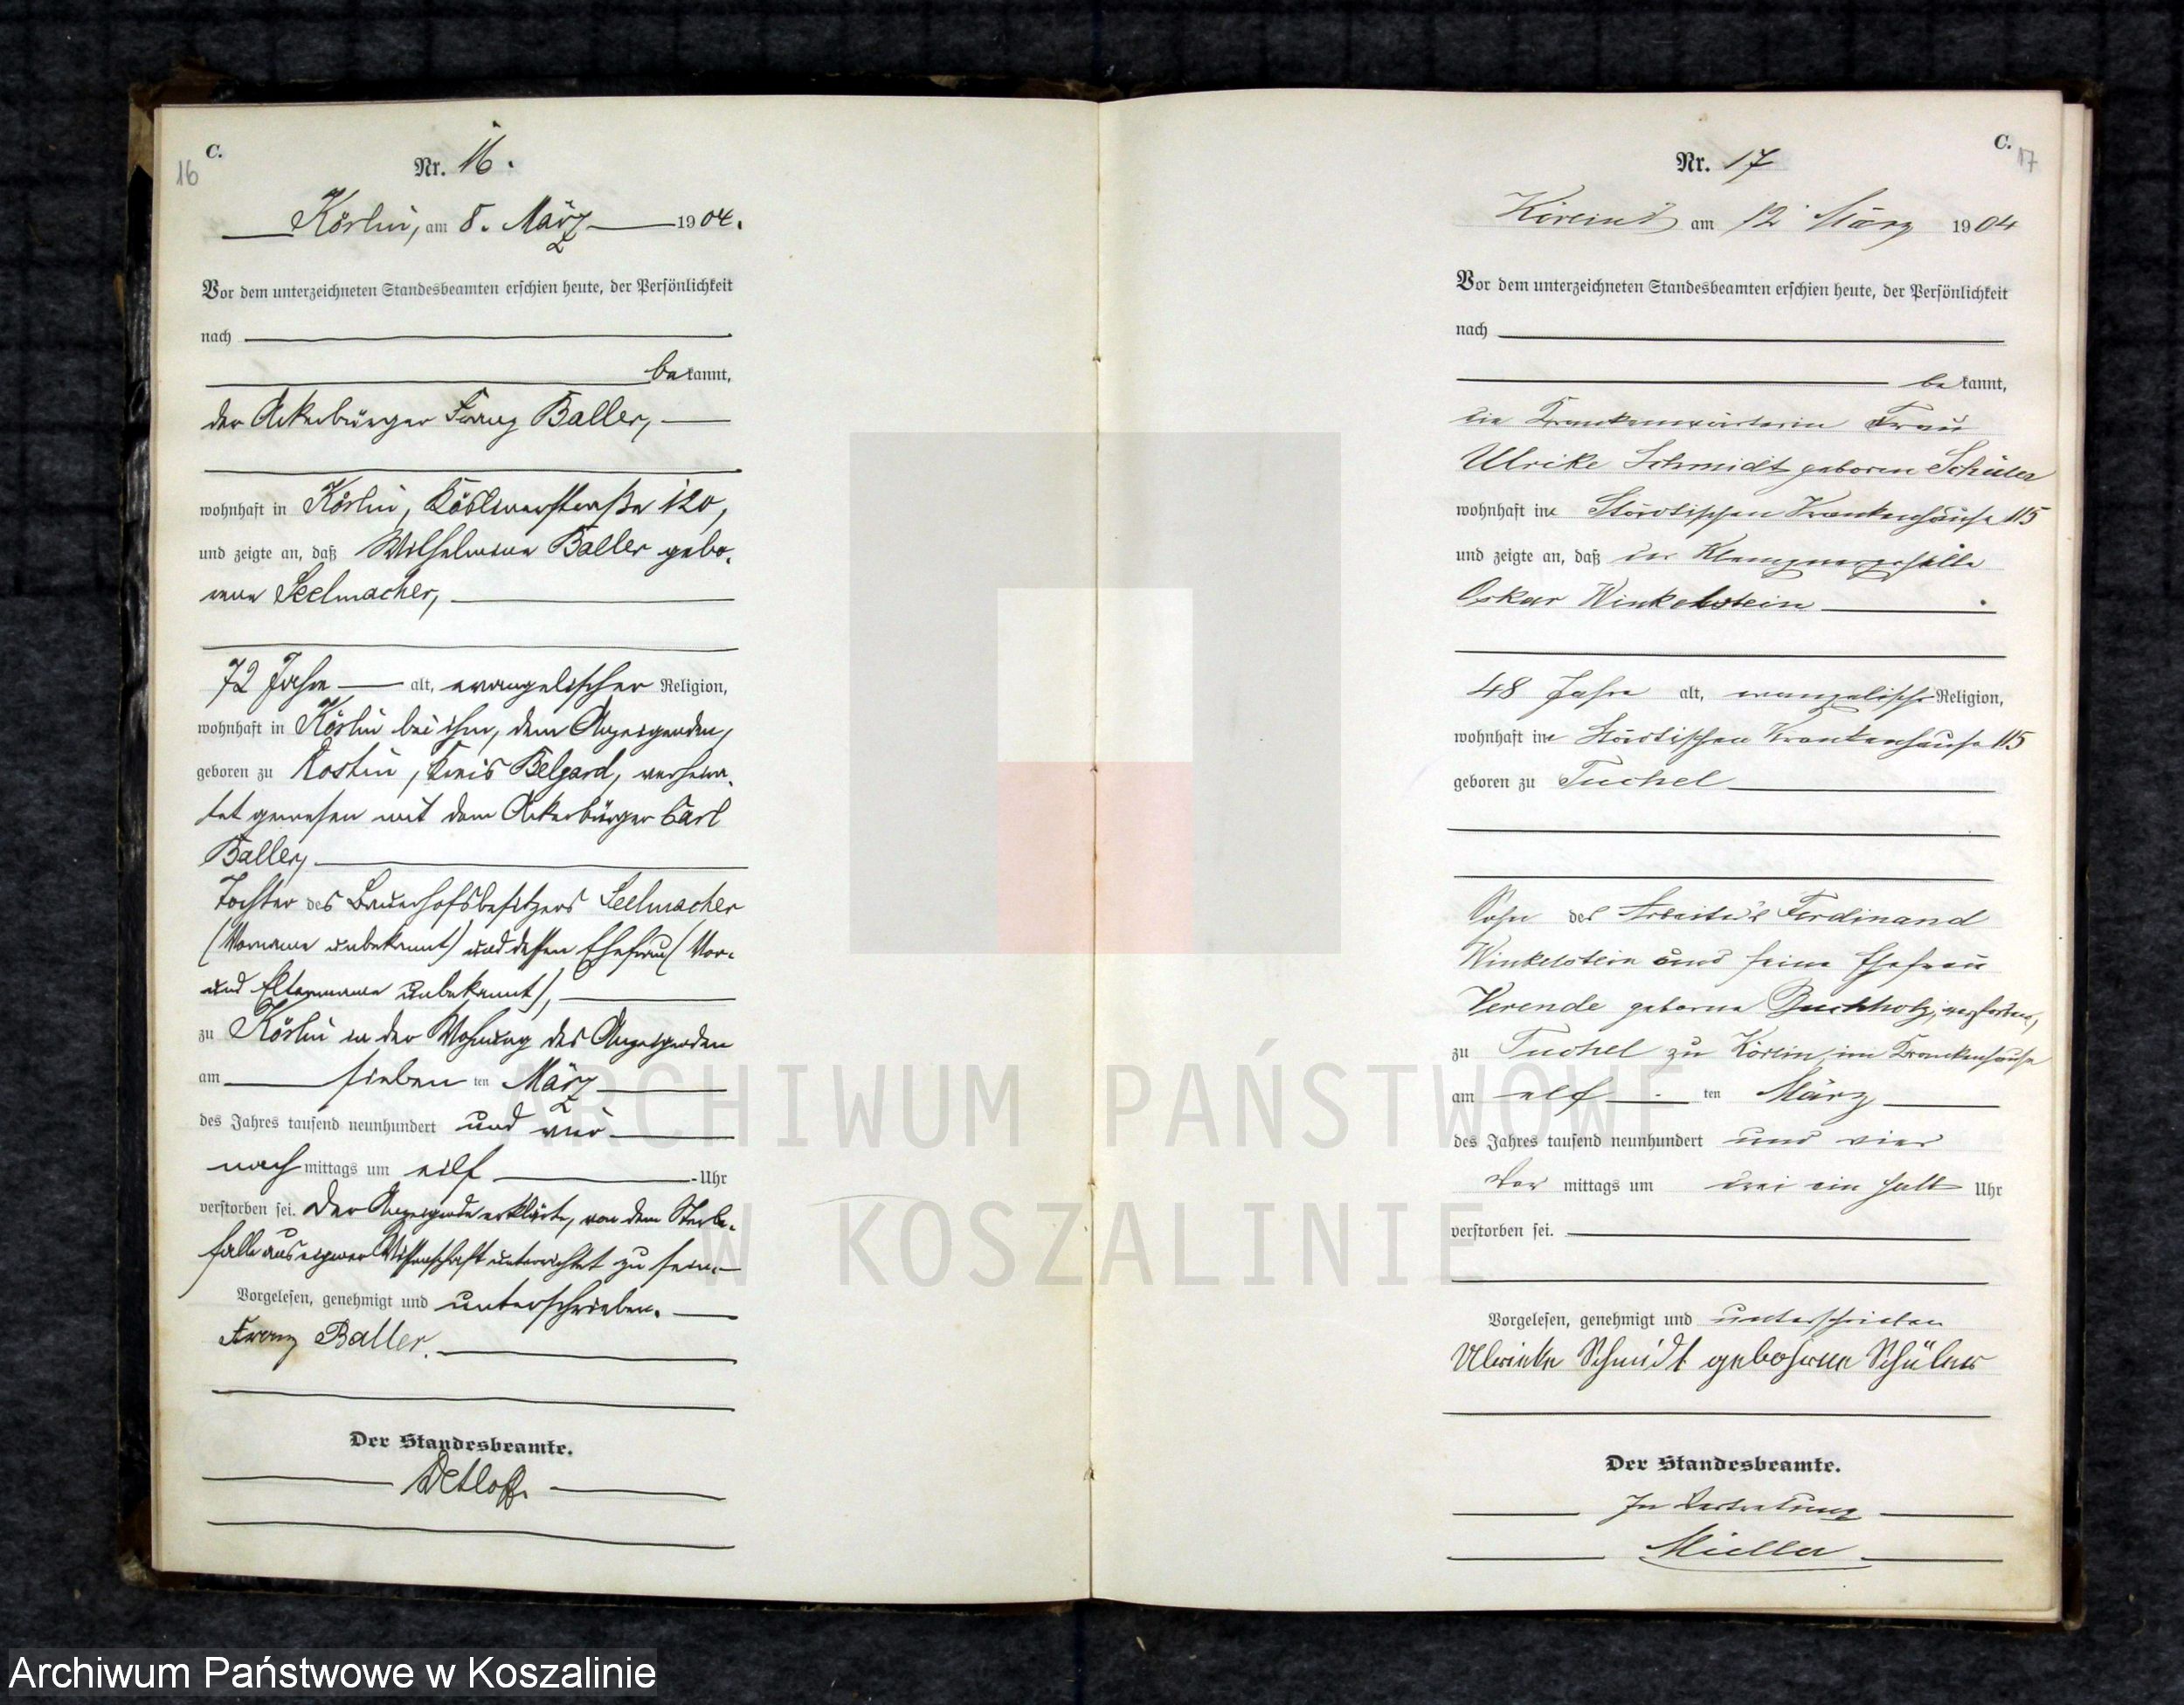 C.
16
Nr. 16.
Körlin, am 8. März 1904.
Vor dem unterzeichneten Standesbeamten erschien heute, der Persönlichkeit
nach
bekannt,
der Ackerbürger Franz Baller,
wohnhaft in Körlin, Cöslinerstraße 120,
und zeigte an, daß Wilhelmine Baller gebo-
rene Seelmacher,
72 Jahre alt, evangelischer Religion,
wohnhaft in Körlin bei ihm, dem Anzeigenden,
geboren zu Rostin, Kreis Belgard, verheira-
tet gewesen mit dem Ackerbürger Carl
Baller,
Tochter des Bauerhofsbesitzers Seelmacher
(Vorname unbekannt) und dessen Ehefrau (Vor-
und Elternname unbekannt),
zu Körlin in der Wohnung des Anzeigenden
am sieben ten März
des Jahres tausend neunhundert und vier
nach mittags um eilf Uhr
verstorben sei. Der Anzeigende erklärte, von dem Sterbe-
falle aus eigener Wissenschaft unterrichtet zu sein.
Vorgelesen, genehmigt und unterschrieben.
Franz Baller.
Der Standesbeamte.
Detloff.
C.
17
Nr. 17
Körlin am 12 März 1904
Vor dem unterzeichneten Standesbeamten erschien heute, der Persönlichkeit
nach
bekannt,
die Krankenwärterin Frau
Ulrike Schmidt geboren Schüler
wohnhaft im Städtischen Krankenhause 115
und zeigte an, daß der Klempnergeselle
Oskar Winkelstein
48 Jahre alt, evangelisch Religion,
wohnhaft im Städtischen Krankenhause 115
geboren zu Tuchel
Sohn des Arbeiter's Ferdinand
Winkelstein und seine Ehefrau
geborne Buchholz, verstorben,
zu Tuchel zu Körlin im Krankenhause
am elf ten März
des Jahres tausend neunhundert und vier
Vor mittags um drei ein halb Uhr
verstorben sei.
Vorgelesen, genehmigt und unterschrieben
Ulrieke Schmidt geborene Schüler
Der Standesbeamte.
In Vertretung
Müller
ARCHIWUM PAŃSTWOWE
W KOSZALINIE
Archiwum Państwowe w Koszalinie